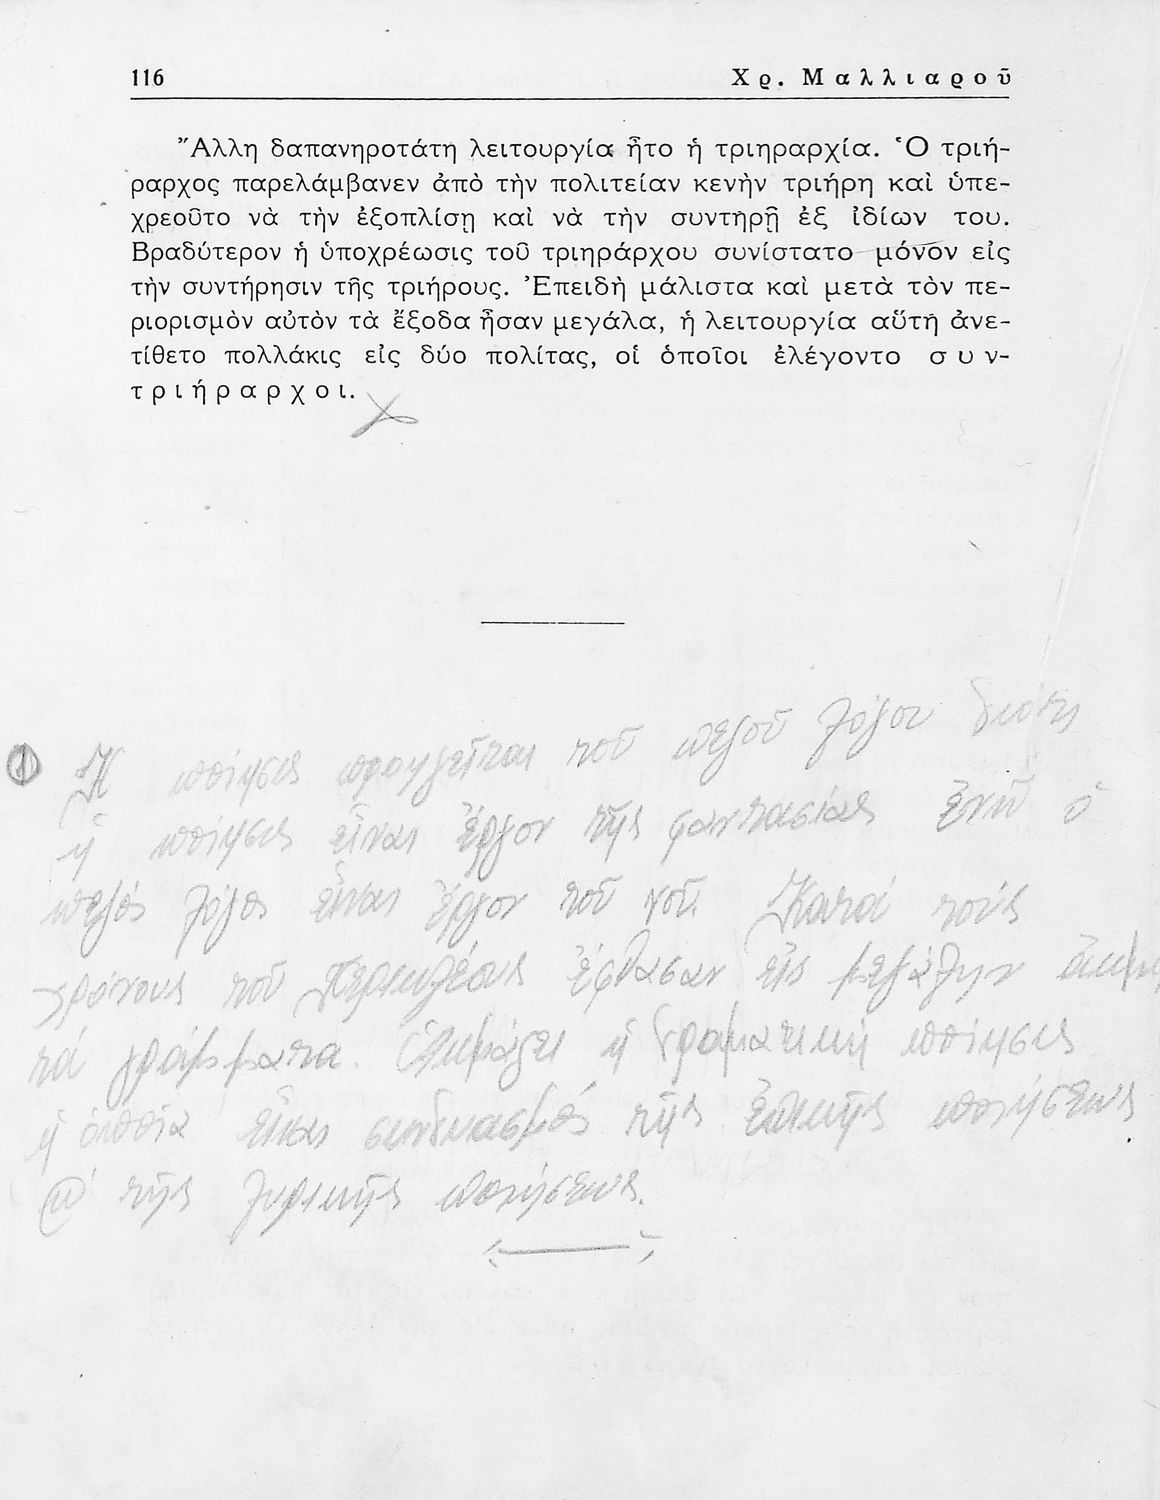 116
Χρ. Μαλλιαροῦ
Ἄλλη δαπανηροτάτη λειτουργία ἦτο ἡ τριηραρχία. Ὁ τριή-
ραρχος παρελάμβανεν ἀπὸ τὴν πολιτείαν κενὴν τριήρη καὶ ὑπε-
χρεοῦτο νὰ τὴν ἐξοπλίσῃ καὶ νὰ τὴν συντηρῇ ἐξ ἰδίων του.
Βραδύτερον ἡ ὑποχρέωσις τοῦ τριηράρχου συνίστατο μόνον εἰς
τὴν συντήρησιν τῆς τριήρους. Ἐπειδὴ μάλιστα καὶ μετὰ τὸν πε-
ριορισμὸν αὐτὸν τὰ ἔξοδα ἦσαν μεγάλα, ἡ λειτουργία αὕτη ἀνε-
τίθετο πολλάκις εἰς δύο πολίτας, οἱ ὁποῖοι ἐλέγοντο συν-
τριήραρχοι.
① Ἡ ποίησις προηγεῖται τοῦ πεζοῦ λόγου διότι
ἡ ποίησις εἶναι ἔργον τῆς φαντασίας ἐνῶ ὁ
πεζός λόγος εἶναι ἔργον τοῦ νοῦ. Κατά τούς
χρόνους τοῦ Περικλέους ἔφθασαν εἰς μεγάλην ἀκμήν
τά γράμματα. Ἀκμάζει ἡ δραματική ποίησις
ἡ ὁποία εἶναι συνδυασμός τῆς ἐπικῆς ποιήσεως
κ' τῆς λυρικῆς ποιήσεως.